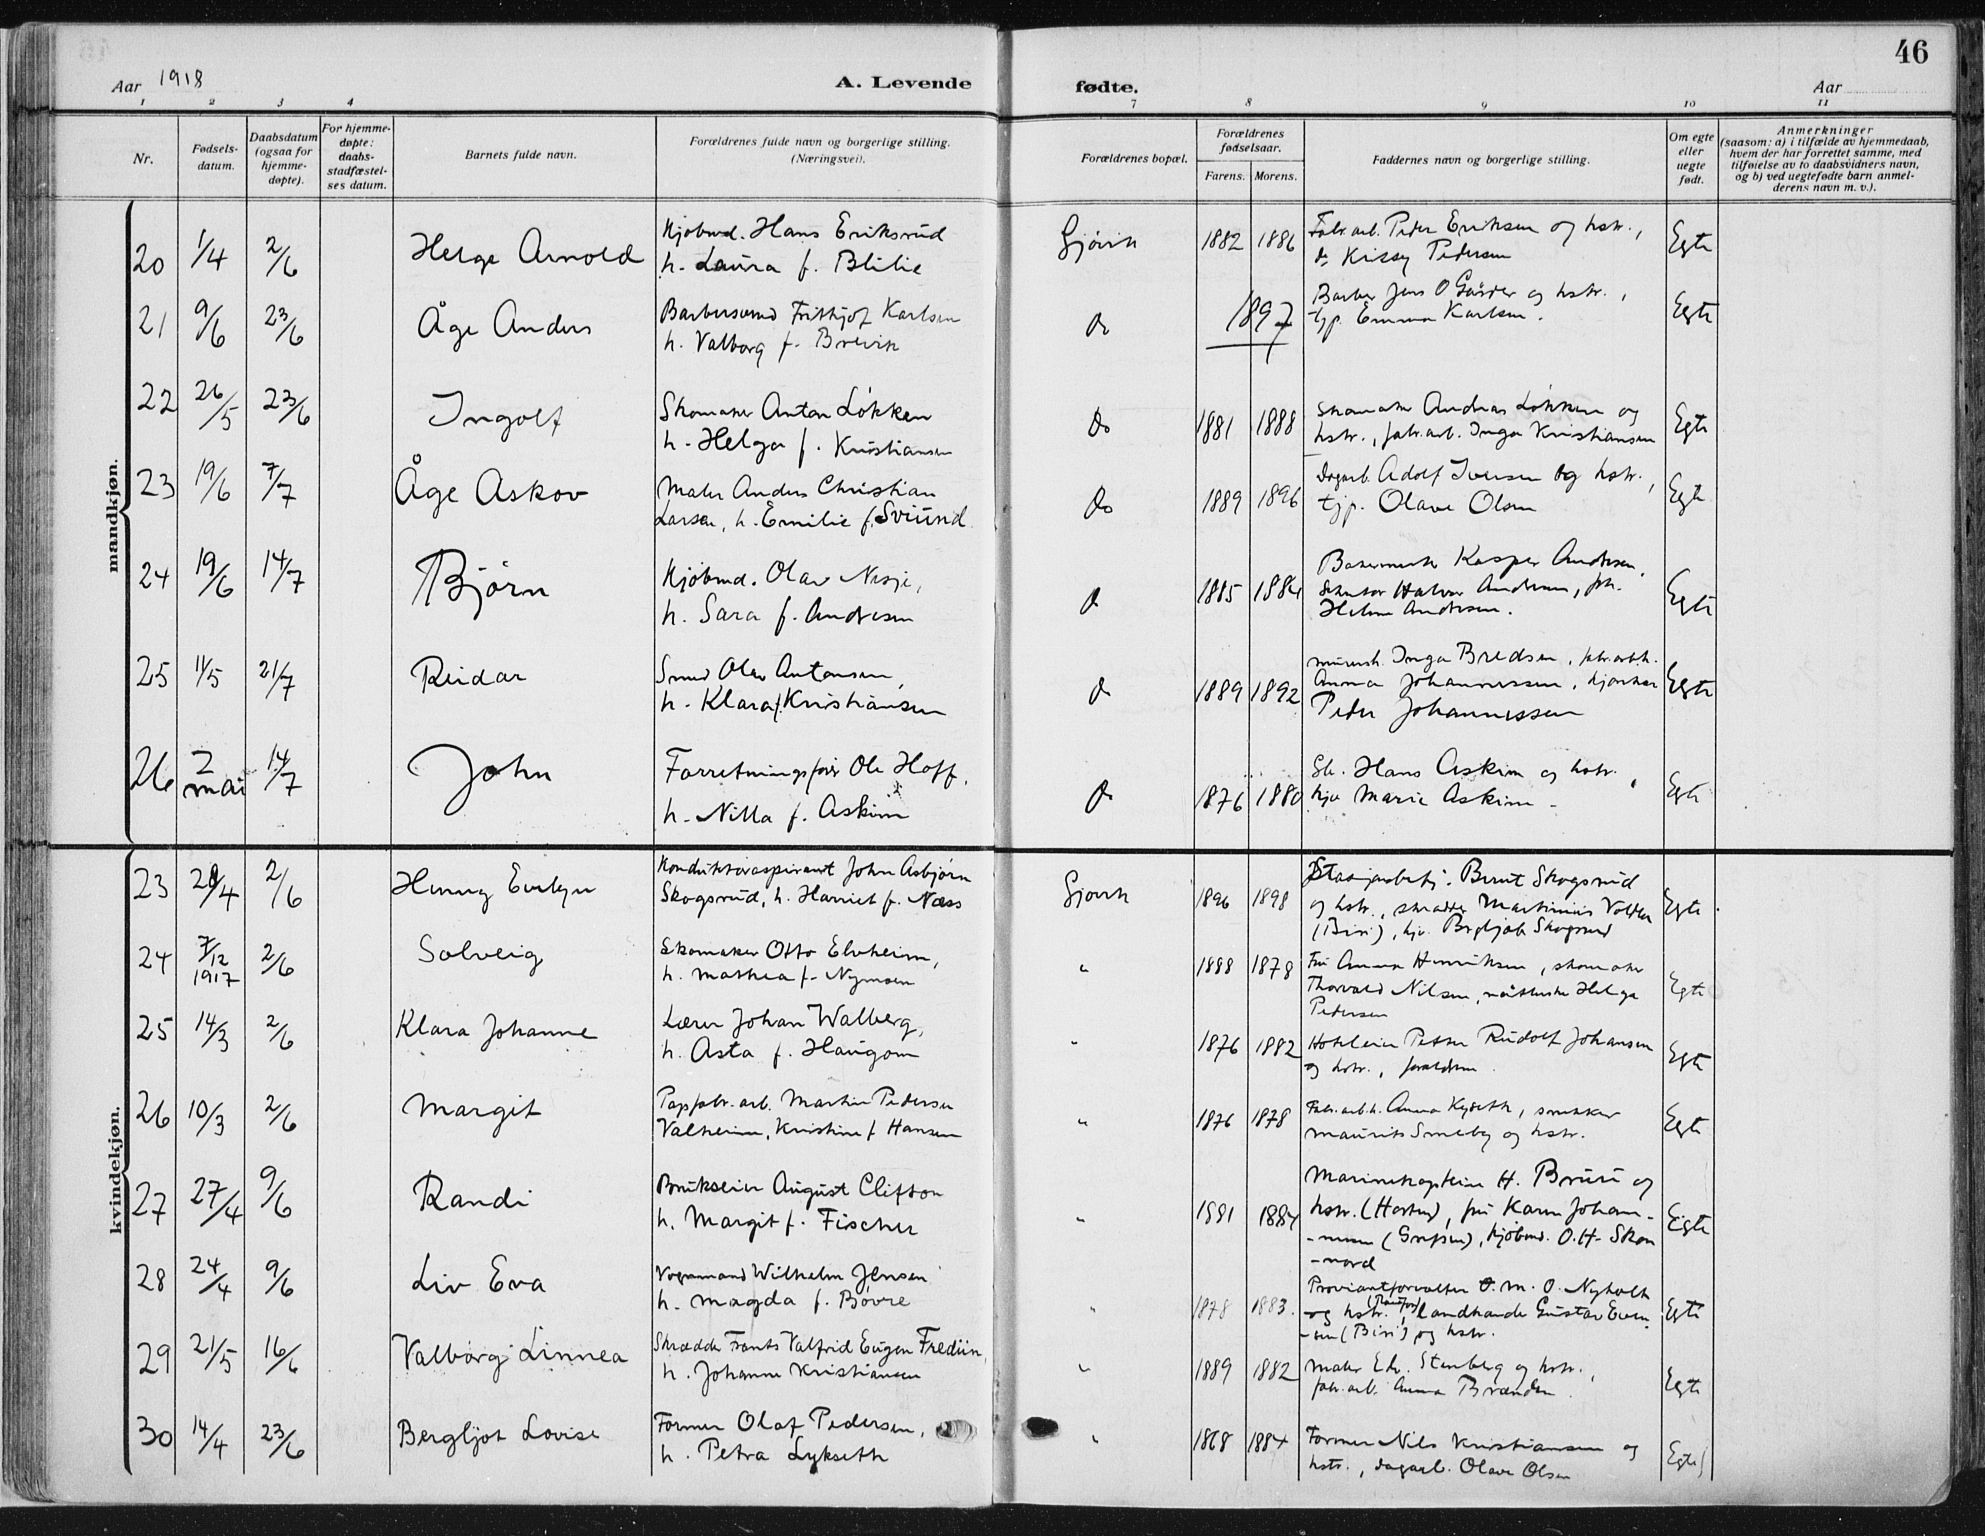 46
Aar 1918 A. Levende fødte. Aar
1 2 3 4 7 8 9 10 11
Nr.
Fødsels-
datum.
Daabsdatum
(ogsaa for
hjemme-
døpte).
For hjemme-
døpte:
daabs-
stadfæstel-
ses datum.
Barnets fulde navn.
Forældrenes fulde navn og borgerlige stilling.
(Næringsvei).
Forældrenes bopæl.
Forældrenes
fødselsaar.
Farens. Morens.
Faddernes navn og borgerlige stilling.
Om egte
eller
uegte
født.
Anmerkninger
(saasom: a) i tilfælde av hjemmedaab,
hvem der har forrettet samme, med
tilføielse av to daabsvidners navn,
og b) ved uegtefødte barn anmel-
derens navn m. v.).
mandkjøn.
20 1/4 2/6 Helge Arnold Kjøbmd. Hans Eriksrud
h. Laura f. Blilie
Gjøvik 1882 1886 Fabr.arb. Peder Eriksen og hstr.,
do Kissy Pedersen
Egte
21 9/6 23/6 Åge Anders Barbersvend Frithjof Karlsen
h. Valborg f. Brevik
do 1897 Barber Jens O Gårder og hstr.,
tjp. Emma Karlsen.
Egte
22 26/5 23/6 Ingolf Skomaker Anton Løkken
h. Helga f. Kristiansen
do 1881 1888 Skomaker Andreas Løkken og
hstr., fabr.arb. Inga Kristiansen
Egte
23 19/6 7/7 Åge Askov Maler Anders Christian
Larsen, h. Emilie f. Sviund
do 1889 1896 Dagarb. Adolf Iversen og hstr.,
tjp. Olave Olsen
Egte
24 19/6 14/7 Bjørn Kjøbmd. Olav Nesje,
h. Sara f. Andresen
do 1885 1884 Bakermester Kasper Andresen,
Halvor Andresen, frk.
Helene Andresen.
Egte
25 11/5 21/7 Reidar Smed Olav Antonsen,
h. Klara f. Kristiansen
do 1889 1892 Inga Bredsen, fabr.arb.
Anna Johannessen,
Peder Johannessen
Egte
26 2 mai 14/7 John Forretningsfører Ole Hoff,
h. Nilla f. Askim
do 1876 1880 Hans Askim og hstr.,
Marie Askim
Egte
kvindekjøn.
23 2/6 Henny Evelyn Konduktøraspirant John Asbjørn
Skogsrud, h. Harriet f. Næss
Gjøvik 1896 1898 Bernt Skogsrud
og hstr., Martinius Volden
(Biri), Bergljot Skogsrud
Egte
24 7/12 1917 2/6 Solveig Skomaker Otto Elvheim,
h. Mathea f. Nymoen
" 1888 1878 Fru Anna Henriksen, skomaker
Thorvald Nilsen, Helga
Pedersen
Egte
25 14/3 2/6 Klara Johanne Lærer Johan Walberg,
h. Asta f. Haugom
" 1876 1882 Hoteleier Petter Rudolf Johansen
og hstr., forældrene
Egte
26 10/3 2/6 Margit Papfabr.arb. Martin Pedersen
Valheim, Kristine f. Hansen
" 1876 1878 Fabr.arb. Anna Kyseth, snekker
Maurits Smeby og hstr.
Egte
27 27/4 9/6 Randi Brukseier August Clifton
h. Margit f. Fischer
" 1881 1884 Marinekaptein H. Bruun og
hstr. (Horten), fru Karen Johan-
-nesen (Grefsen), kjøbmd. O.H. Skon
-nord
Egte
28 24/4 9/6 Liv Eva Vognmand Wilhelm Jensen
h. Magda f. Bøvre
" 1878 1883 Proviantforvalter O. M. O. Nyholt
og hstr., landhandler Gustav Even-
-sen (Biri) og hstr.
Egte
29 21/5 16/6 Valborg Linnea Skrædder Frants Valfrid Eugen Frediin,
h. Johanne Kristiansen
" 1889 1882 Maler Edv. Stenberg og hstr.,
fabr.arb. Anna Brænden.
Egte
30 14/4 23/6 Bergljot Lovise Former Olaf Pedersen,
h. Petra Lykseth
" 1868 1884 Former Nils Kristiansen og
hstr., dagarb. Olave Olsen
Egte